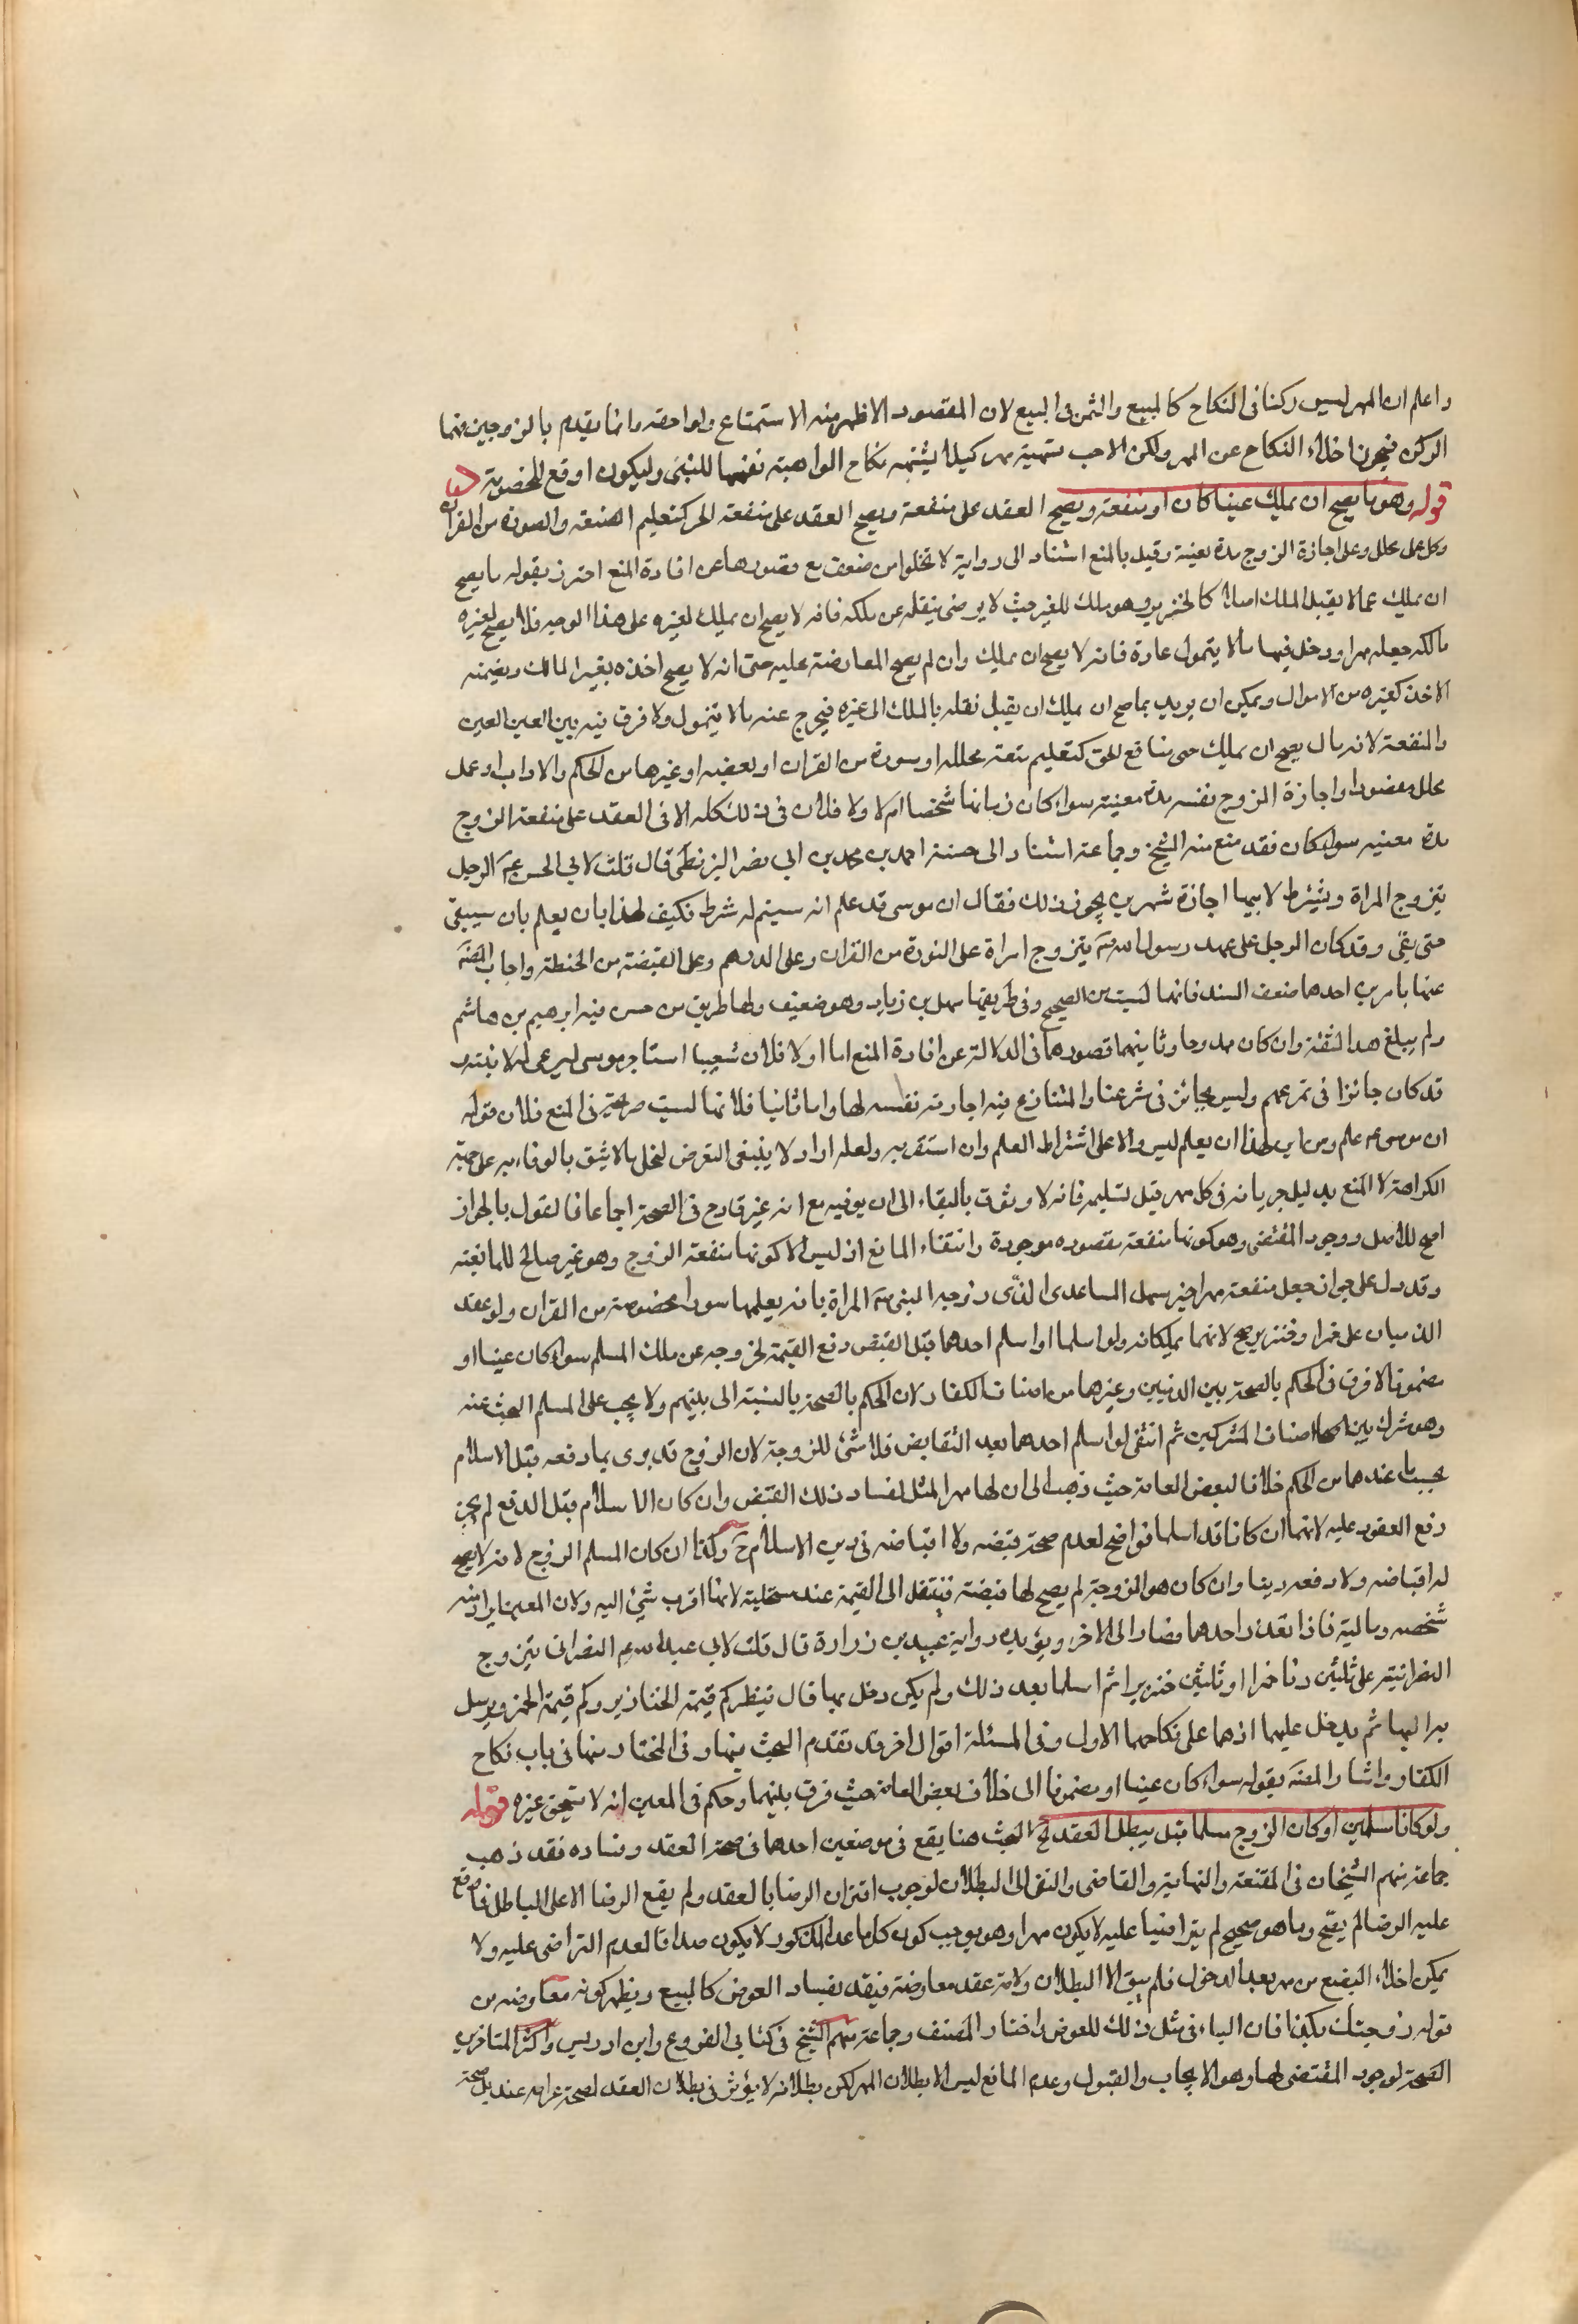 واعلم ان المهر ليس ركنا فى النكاح كالمبيع والثمن فى البيع لان المقصود الاظهر منه الاستمتاع ولواحقه وانما يقدم بالزوجين فهما
الركن فيجوز اخلاء النكاح عن المهر ولكن الاحب تسمية مهر كيلا يشبه نكاح الواهبة نفسها للنبى وليكون اوقع للخصومة
قوله وهو ما يصح ان يملك عينا كان او منفعة ويصح العقد على منفعة ويصح العقد على منفعة الحر كتعليم الصنعة والسورة من القران
وكل عمل محلل وعلى اجازة الزوج مدة معينة وقيل بالمنع استنادا الى رواية لا تخلوا من ضعف مع قصورها عن افادة المنع احترز بقوله ما يصح
ان يملك عما لا يقبل الملك اصلا كالخنزير وهو ملك للغير حيث لا يرضى بنقله عن ملكه فانه لا يصح ان يملك لغيره على هذا الوجه فلا يصح لغيره
مالكه جعله مهرا ودخل فيها ما لا يتمول عادة فانه لا يصح ان يملك وان لم يصح المعاوضة عليه حتى انه لا يصح اخذه بغير المالك ويضمنه
الاخذ كغيره من الاموال ويمكن ان يريد بما صح ان يملك ان يقبل نقله بالملك الى غيره فيخرج عنه ما لا يتمول ولا فرق فيه بين العين العين
والمنفعة لانه مال يصح ان يملك حتى منافع الحر كتعليم متعة محللة او سورة من القران او بعضه او غيرها من الحكم والاداب او عمل
محلل مقصود او اجازة الزوج نفسه مدة معينة سواء كان زمانها شخصا ام لا ولا خلاف فى ذلك كله الا فى العقد على منفعة الزوج
مدة معينه سواء كان فقد منع منه الشيخ وجماعة استنادا الى حسنة احمد بن محمد بن ابى نصر البزنطى قال قلت لابى الحسن ع الرجل
يتزوج المراة ويشترط لابيها اجازة شهرين يجوز ذلك فقال ان موسى قد علم انه سيتم له شرطه فكيف لهذا بان يعلم بان سيبقى
حتى يفى وقد كان الرجل على عهد رسول الله ص يتزوج امراة على السورة من القران وعلى الدرهم وعلى القبضة من الحنطة واجاب المصنف
عنها بامرين احدهما ضعف السند فانها ليست من الصحيح وفى طريقها سهل بن زياد وهو ضعيف ولها طريق من حسن فيه ابرهيم بن هاشم
ولم يبلغ هذا الثقة وان كان ممدوحا وثانيهما قصورهما فى الدلالة عن افادة المنع اما اولا فلان شعيبا استاجر موسى ليرعى له لا بنته
قد كان جائزا فى شرعهم وليس بجائز فى شرعنا والمتنازع فيه اجارته نفسه لها واما ثانيا فلانها ليست صريحة فى المنع فلان قوله
ان موسى ع علم ومن اين لهذا ان يعلم ليس دالا على اشتراط العلم وان استقر به ولعله اراد لا ينبغى التعرض لتحمل ما لا يثق بالوفاء به على جهة
الكراهة لا المنع بدليل جريانه فى كل مهر قبل تسليمه فانه لا وثوق بالبقاء الى ان يوفيه مع انه غير قادح فى الصحة اجماعا فالقول بالجواز
اصح للاصل ووجود المقتضى وهو كونها منفعة مقصوده موجودة وانتفاء المانع اذ ليس الا كونها منفعة الزوج وهو غير صالح للمانعية
وقد دل على جواز جعل منفعته مهرا خبر سهل الساعدى الذى زوجه النبى ص المراة بانه يعلمها سورا مخصوصة من القران ولو عقد
الذميان على خمر او خنزير صح لانهما يملكانه ولو اسلما او اسلم احدهما قبل القبض دفع القيمة لخروجه عن ملك المسلم سواء كان عينا او
مضمونا لا فرق فى الحكم بالصحة بين الذميين وغيرهما من اصناف الكفار لان الحكم بالصحة بالنسبة الى بلنهم ولا يجب على المسلم البحث عنه
وهو مشترك بين اصناف المشركين ثم انتقى لو اسلم احدهما بعد التقابض فلا شئ للزوجة لان الزوج قد برى بما دفعه قبل الاسلام
بحسب ما عندهما من الحكم خلافا لبعض العامة حيث ذهب الى ان لها مهر المثل لفساد ذلك القبض وان كان الاسلام قبل الدفع لم يجز
دفع العقود عليه لانهما ان كانا قد اسلما فواضح لعدم صحة قبضه ولا اقباضه فى دين الاسلام ح وكذا ان كان المسلم الزوج لانه لا يصح
له اقباضه ولا دفعه دينا وان كان هو الزوجة لم يصح لها قبضة فينتقل الى القيمة عند مستحليه لانها اقرب شئ اليه ولان المعين يراد منه
شخصه وماليته فاذا تعذر احدهما فصار الى الاخر ويؤيده رواية عبيد بن زرارة قال قلت لابى عبد الله ع النصرانى يتزوج
النصرانية على ثلثين دنا خمرا او ثلثين خنزيرا ثم اسلما بعد ذلك ولم يكن دخل بها قال ينظر كم قيمة الخنازير وكم قيمة الخمر ويرسل
به اليها ثم يدخل عليها اذهما على نكاحهما الاول وفى المسئلة اقوال اخر وقد تقدم البحث فيها وفى المختار منها فى باب نكاح
الكفار واشار المصنف بقوله سواء كان عينا او مضمونا الى خلاف بعض العامة حيث فرق بينهما وحكم فى المعين انه لا تستحق غيره قوله
ولو كانا مسلمين او كان الزوج مسلما قبل يبطل العقد الخ البحث هنا يقع فى موضعين احدهما فى صحة العقد وفساده فقد ذهب
جماعة منهم الشيخان فى المقنعة والنهاية والقاضى والتقى الى البطلان لوجوب اقتران الرضا بالعقد ولم يقع الرضا الا على الباطل فما وقع
عليه الرضا لم يصح وما هو صحيح لم يتراضيا عليه لا يكون مهرا وهو يوجب كون كل ما عدا المذكور لا يكون صداقا لعدم التراضى عليه ولا
يمكن اخلاء البضع من مهر بعد الدخول فلم يبق الا البطلان ولانه عقد معاوضة فيفسد بفساد العوض كالبيع ويظهر كونه معاوضه من
قوله زوجتك بكذا فان الباء فى مثل ذلك للعوض واختار المصنف وجماعة منهم الشيخ فى كتابى الفروع وابن ادريس واكثر المتاخرين
الصحة لوجود المقتضى لها وهو الايجاب والقبول وعدم المانع ليس الا بطلان المهر لكن بطلانه لا يؤثر فى بطلان العقد لصحة عرائه عنه بل صحة